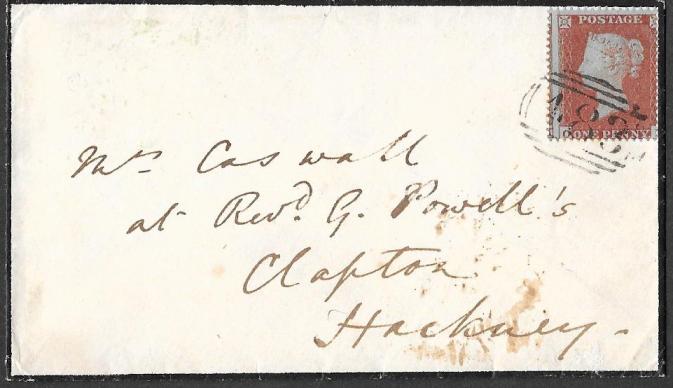 POSTAGE
ONE PENNY
Mrs Caswall
at Revd. G. Powell's
Clapton
Hackney.